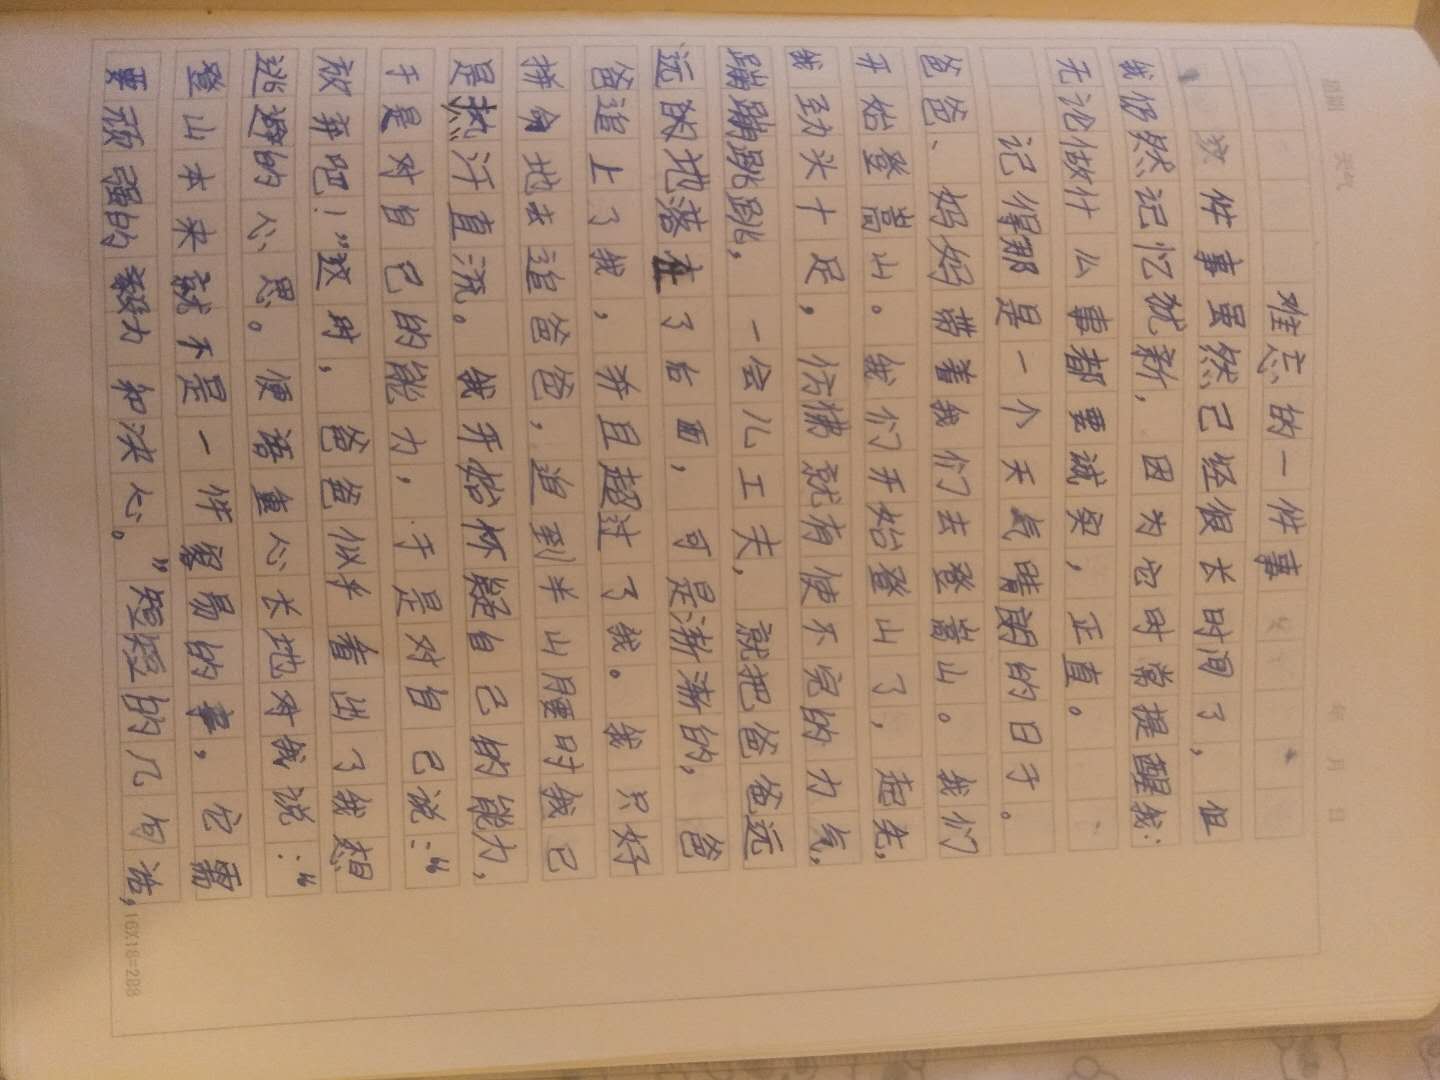 日期 年 月 日
天气
难忘的一件事
这件事虽然已经很长时间了，但
我仍然记忆犹新，因为它时常提醒我：
无论做什么事都要诚实，正直。
记得那是一个天气晴朗的日子。
爸爸、妈妈带着我们去登嵩山。我们
开始登嵩山。我们开始登山了，起先，
我劲头十足，仿佛就有使不完的力气，
蹦蹦跳跳，一会儿工夫，就把爸爸远
远的地落在了后面，可是渐渐的，爸
爸追上了我，并且超过了我。我只好
拼命地去追爸爸，追到半山腰时我已
是热汗直流。我开始怀疑自己的能力，
于是对自己的能力，于是对自己说：“
放弃吧！”这时，爸爸似乎看出了我想
逃避的心思。便语重心长地对我说：“
登山本来就不是一件容易的事，它需
要顽强的毅力和决心。”短短的几句话，
16X18=288